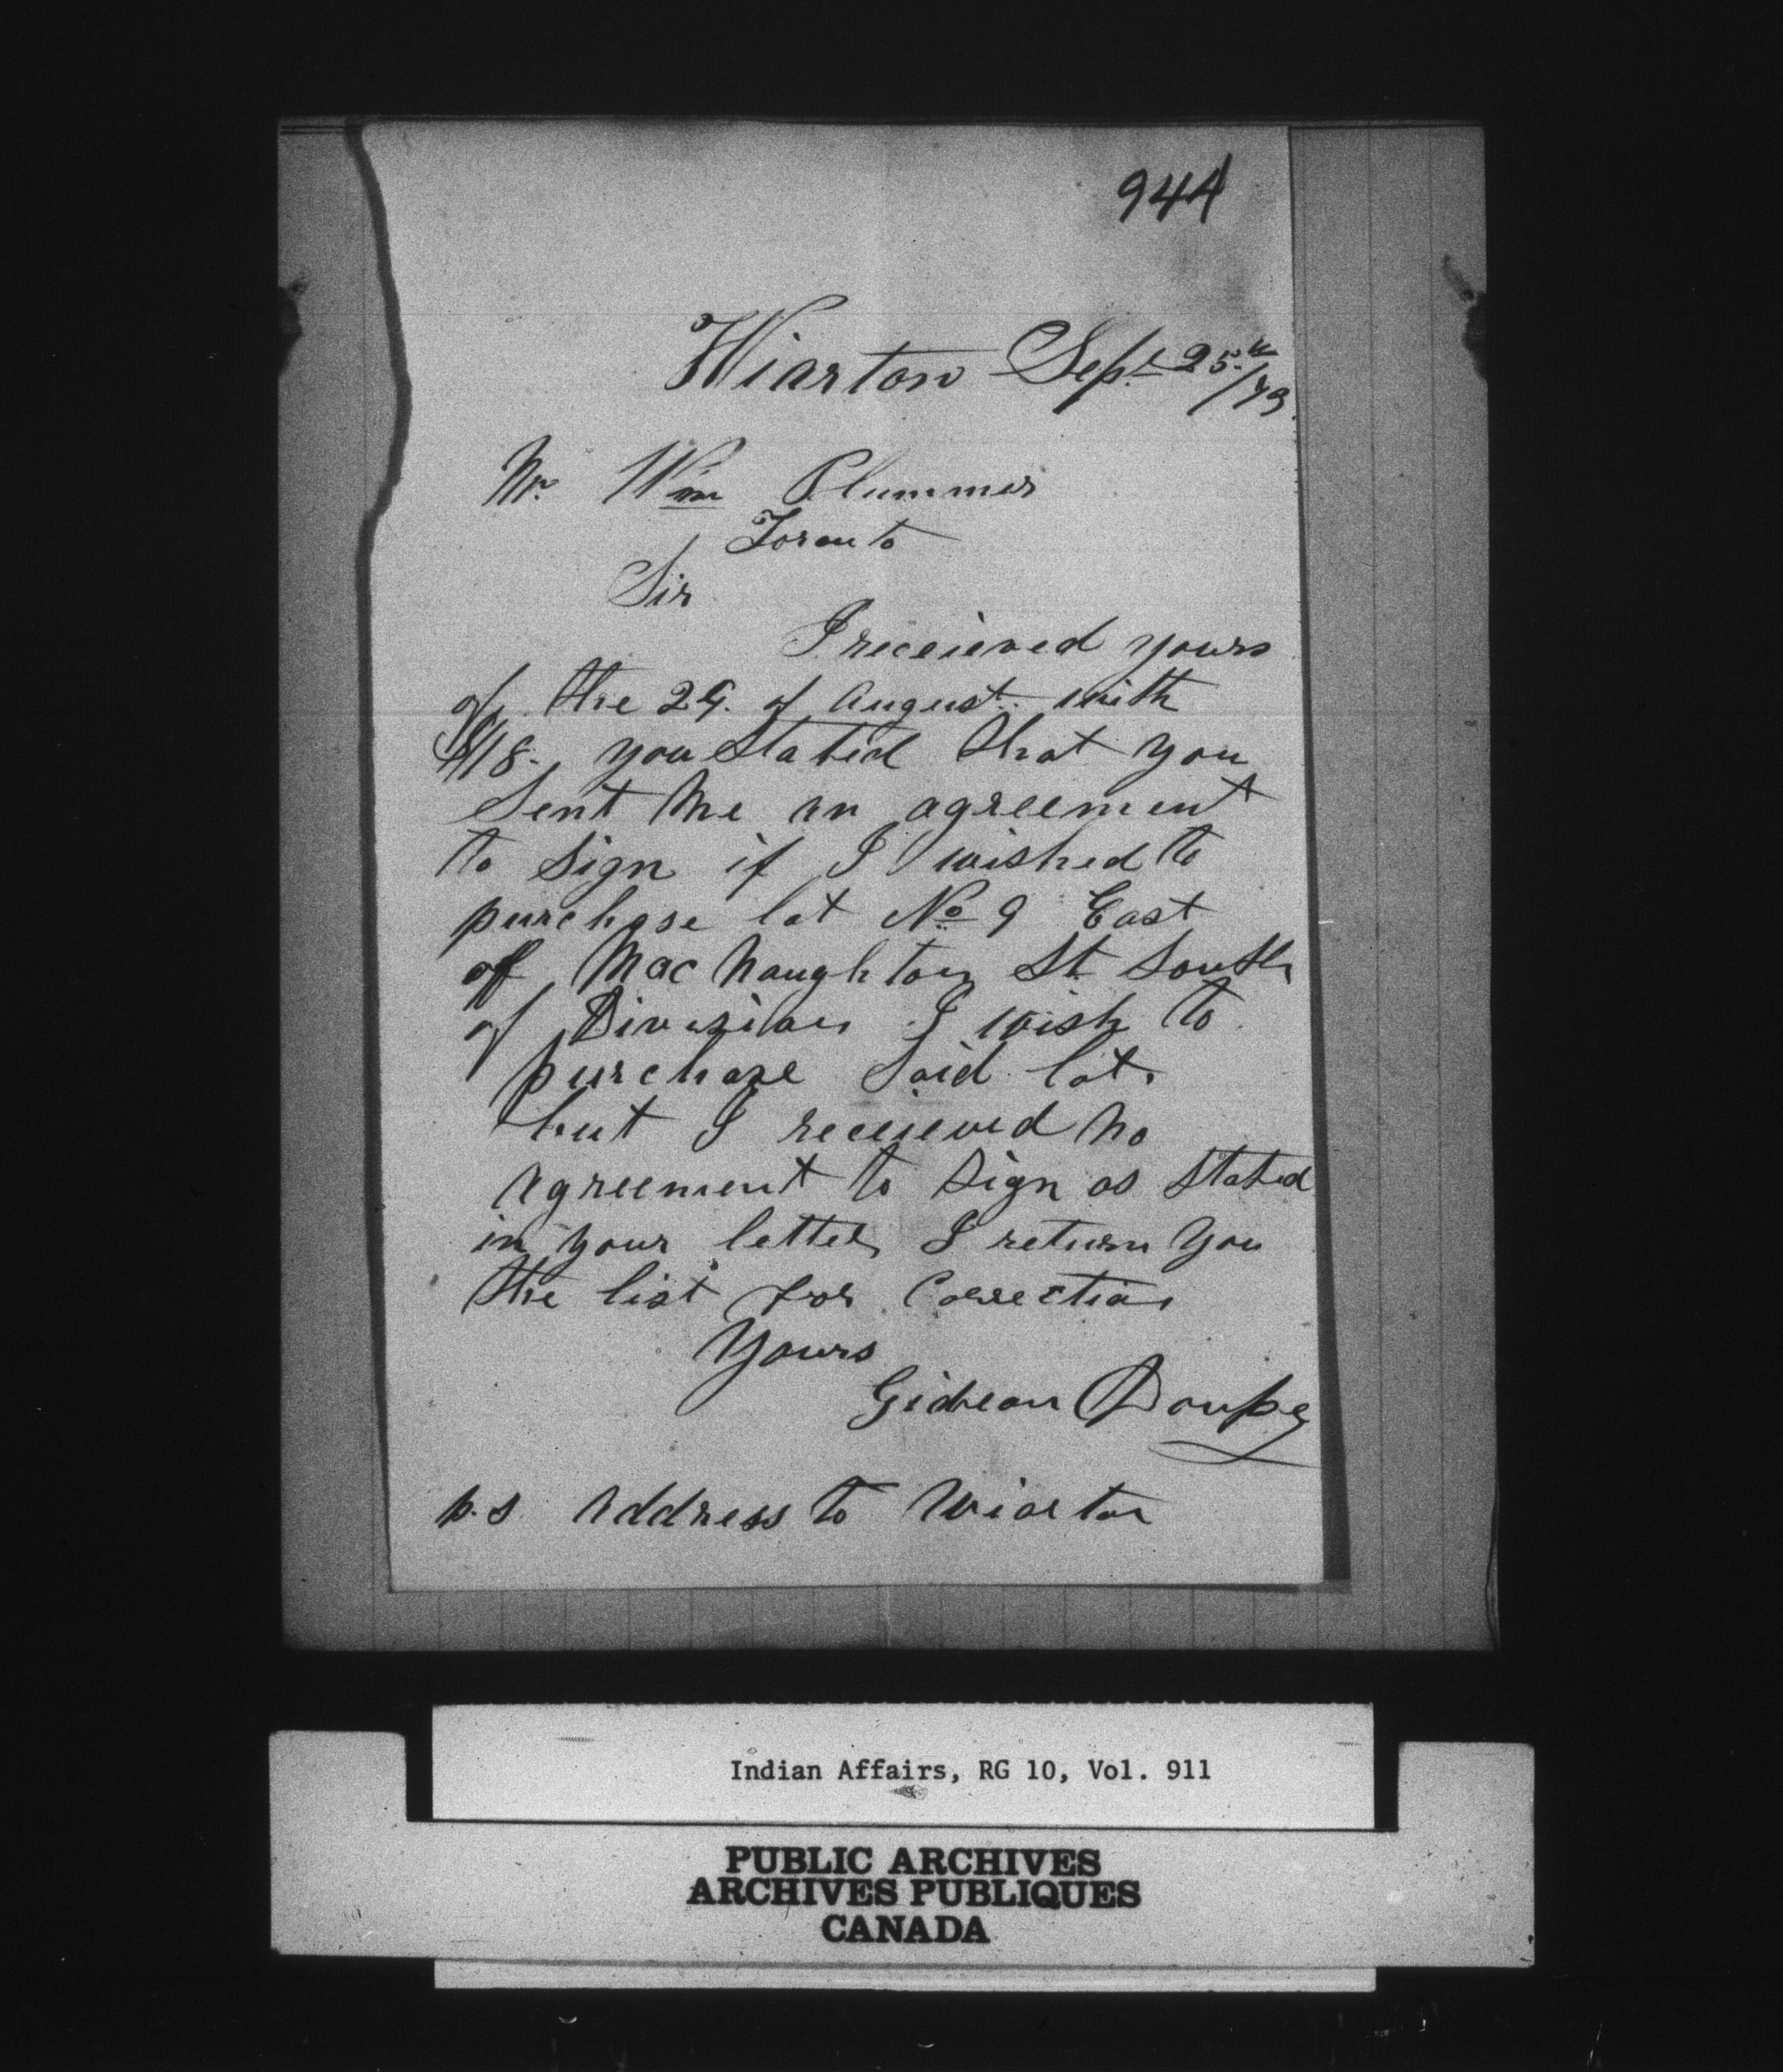 944
Wiarton Sept 25th
/73
Mr. Wm Plummer
Toronto
Sir
I receieved yours
of the 29. of August. with
$18. you stated that you
sent me an agreement
to sign if I wished to
purchase lot No 9 East
of Mac Naughton St South
of Division I wish to
purchase said lot.
but I receieved no
agreement to sign as stated
in your letter, I return you
the list for Correction
Yours
Gideon Doupe
p.s. Address to Wiarton
Indian Affairs, RG 10, Vol. 911
PUBLIC ARCHIVES
ARCHIVES PUBLIQUES
CANADA